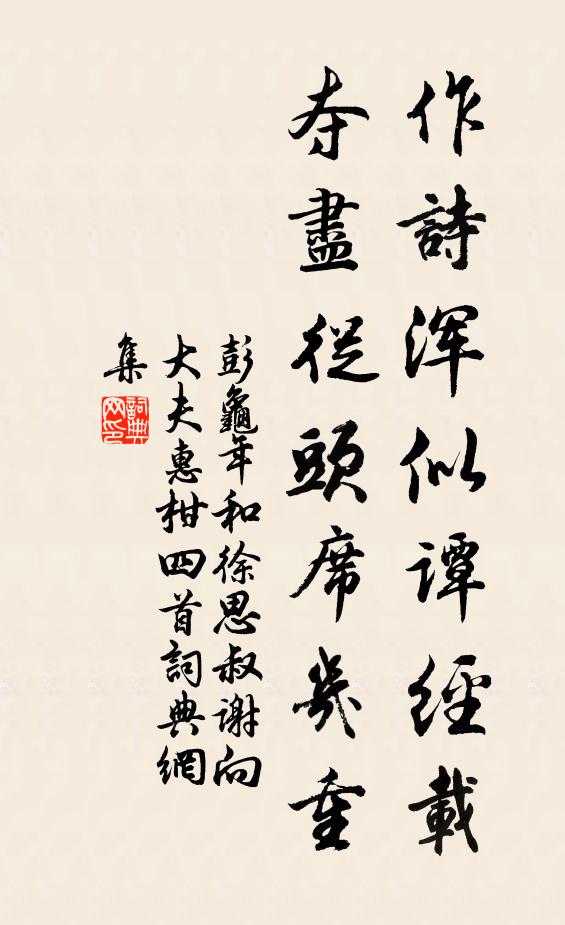 作詩渾似譚經載
夺盡從頭席幾重
彭龜年和徐思叔谢向
大夫惠柑四首詞典網
集
詞典网印